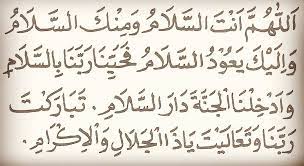 اَللّٰهُمَّ اَنْتَ السَّلَامُ وَمِنْكَ السَّلَامُ
وَاِلَيْكَ يَعُوْدُ السَّلَامُ فَحَيِّنَارَبَّنَا بِالسَّلَامِ
وَاَدْخِلْنَا الْجَنَّةَ دَارَ السَّلَامِ. تَبَارَكْتَ
رَبَّنَا وَتَعَالَيْتَ يَاذَا الْجَلَالِ وَالْاِكْرَامِ.